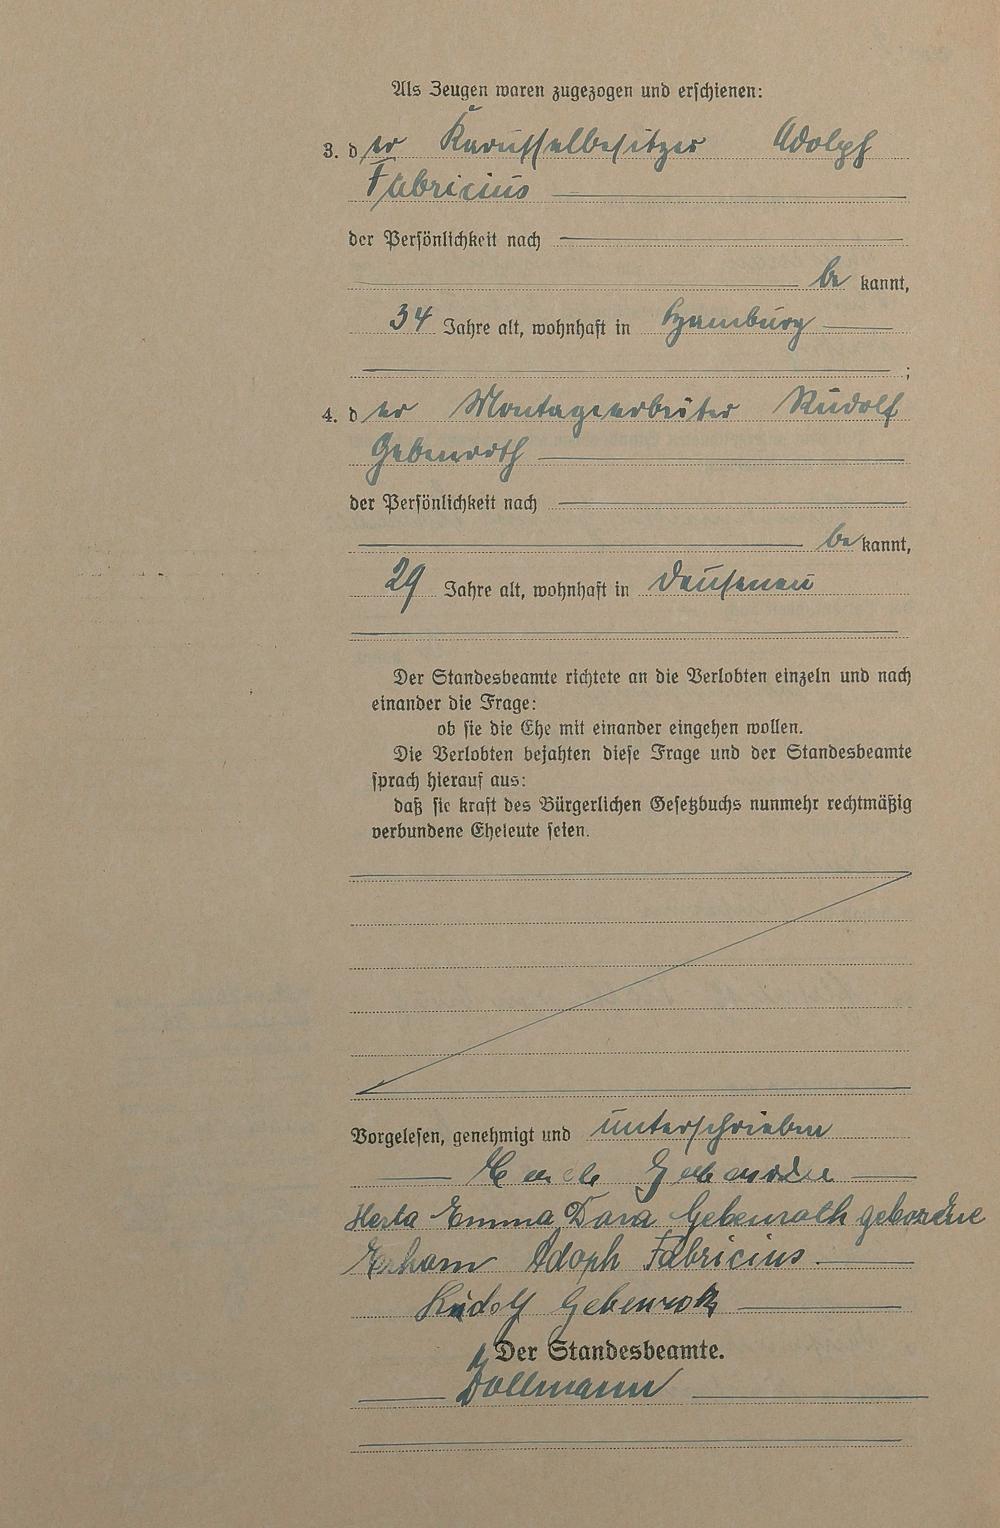 Als Zeugen waren zugezogen und erschienen:
3. der Karusselbesitzer Adolph
Fabricius
der Persönlichkeit nach
be kannt,
34 Jahre alt, wohnhaft in Hamburg
;
4. der Montagearbeiter Rudolf
Gebenroth
der Persönlichkeit nach
be kannt,
29 Jahre alt, wohnhaft in Dausenau
Der Standesbeamte richtete an die Verlobten einzeln und nach
einander die Frage:
ob sie die Ehe mit einander eingehen wollen.
Die Verlobten bejahten diese Frage und der Standesbeamte
sprach hierauf aus:
daß sie kraft des Bürgerlichen Gesetzbuchs nunmehr rechtmäßig
verbundene Eheleute seien.
Vorgelesen, genehmigt und unterschrieben
Gebenroth
Herta Emma Dora Gebenroth geborene
Adoph Fabricius
Rudolf Gebenroth
Der Standesbeamte.
Dollmann